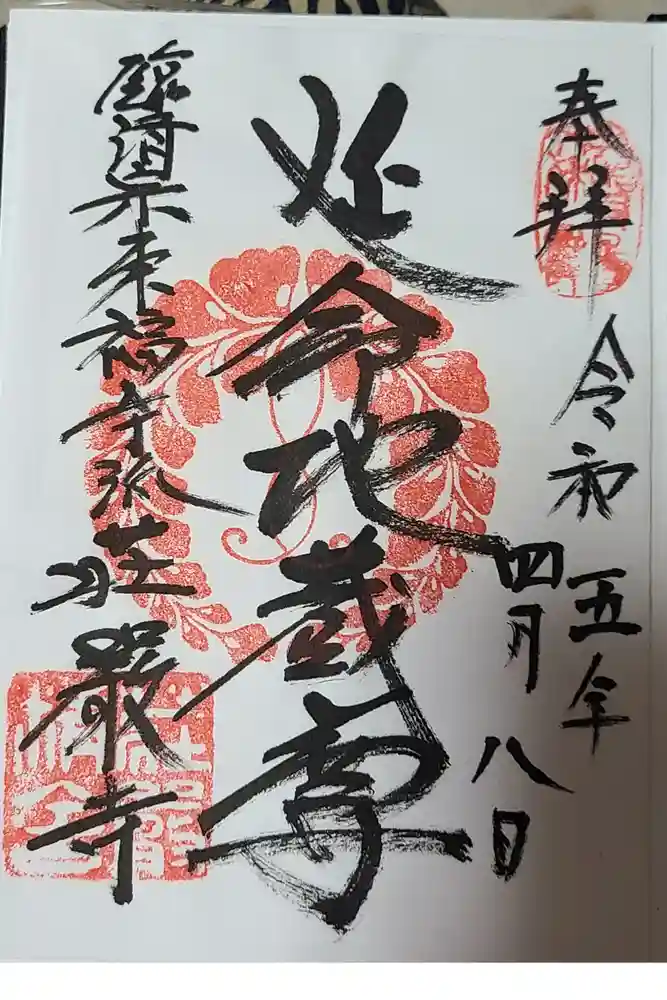 奉拝
令和五年
四月八日
延命地蔵尊
臨済宗東福寺派
荘厳寺